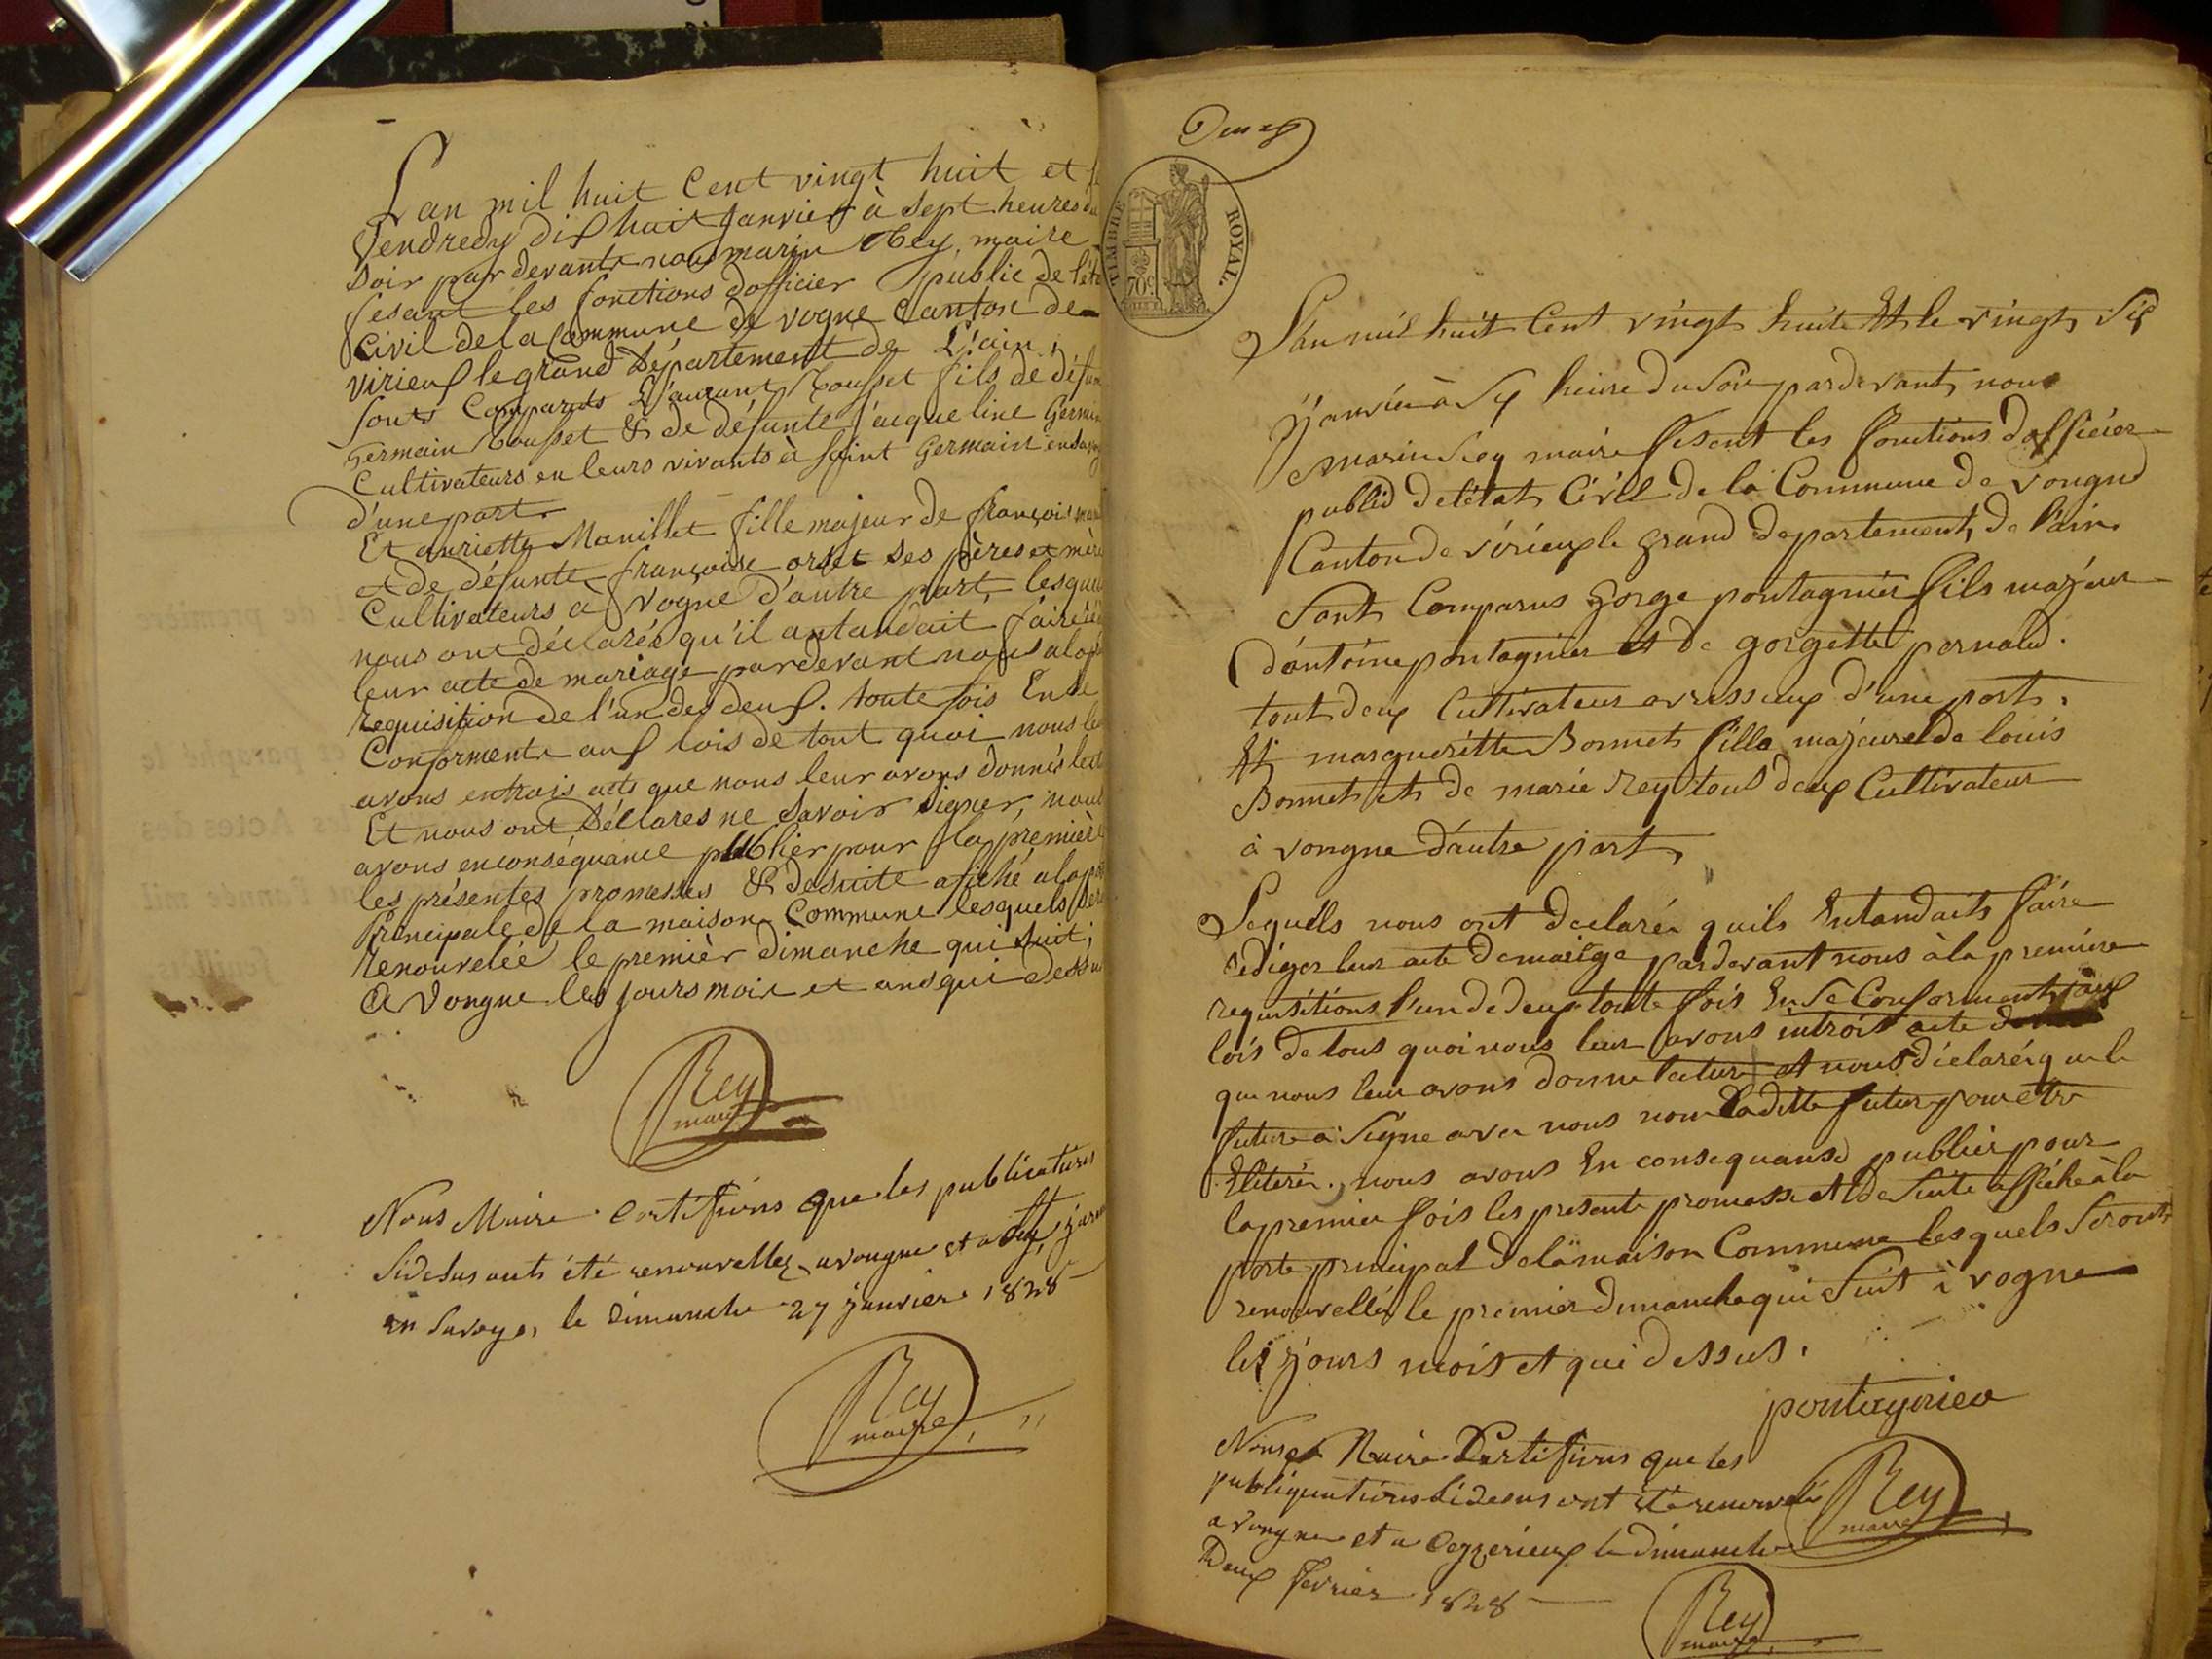 Lan mil huit Cent vingt huit et
Vendredy dishuit Janvier à Sept heures du
Soir par devant nous marin Rey maire
fesant les fonctions dofficier public de l'éta
Civil de la Commune de vogne Canton de
virieus le grand Département de L'ain,
sont Comparuts Rousset fils de défun
Germain Rousset & de défunte Jacqueline Germin
Cultivateurs en leurs vivants à saint Germain en
d'une part.
Et anriette Manillet fille majeur de françois
et de défunte françoise orset ses pères et mère
Cultivateurs à Vogne d'autre part, lesque
nous ont déclarés qu'il antandait faire
leur acte de mariage pardevant nous ala
requisition de l'un des deus. toute fois En se
Conformente aus lois de tout quoi nous le
avons entrois acts que nous leur avons donnés lect
Et nous ont Déllares ne Savoir Signer, nous
avons en conséquance publier pour la première
les présentes promesses & desuite afiché ala po
Principale de la maison Commune lesquels Se
renouvelée le premièr dimanche qui Suit;
à Vongne les jours mois et ans qui dessu
Rey
maire
Nous Maire Certifions que les publications
Sidesus onts été renouvellez a vongne et a
en Savoye, le Dimanche 27 janvier 1828
Rey
maire
TIMBRE ROYAL.
70c
Lan mil huit Cent vingt huite Et le vingt Sis
Janvier à Sis heure du Soir pardevant nous
Marin Rey maire fesent les fonctions dofficier
public deletat Civil de la Commune de Vongne
Canton de virieux le grand departement de l'ain.
Sont Comparus Gorge pontagnier fils majeur
d'antoine pontagnier et de gorgette pernaud.
tout deux Cultivateur a ressieux d'une part.
Et margueritte Bonnet fille majeure de louis
Bonnet et de marie Rey tout deux Cultivateur
à vongne d'autre part
Lequels nous ont declarés quils Entandaits faire
rédiger leur acte de mariage pardevant nous à la premiere
requisitions l'un de deux toute fois En Se Conforment aux
lois de tous quoi nous leur avons introis acte
que nous leur avons donne lecture et nous déclaré que le
futur a Signe avec nous non Ladite futur pour etre
Eliteré. nous avons En consequanse publier pour
la premier fois les presente promesse et de Suite affiche à la
porte principal de la maison Commune lesquels Seront
renouvellés le premier dimanche qui Suit à vogne
les jours mois et qui dessus.
pontagnier
Nous Maire Certifions que les
publiquations Sidesus ont été renouvelé
a vongne et a Ceyzerieux le dimanche
Deux fevrier 1828
Rey
maire
Rey
maire